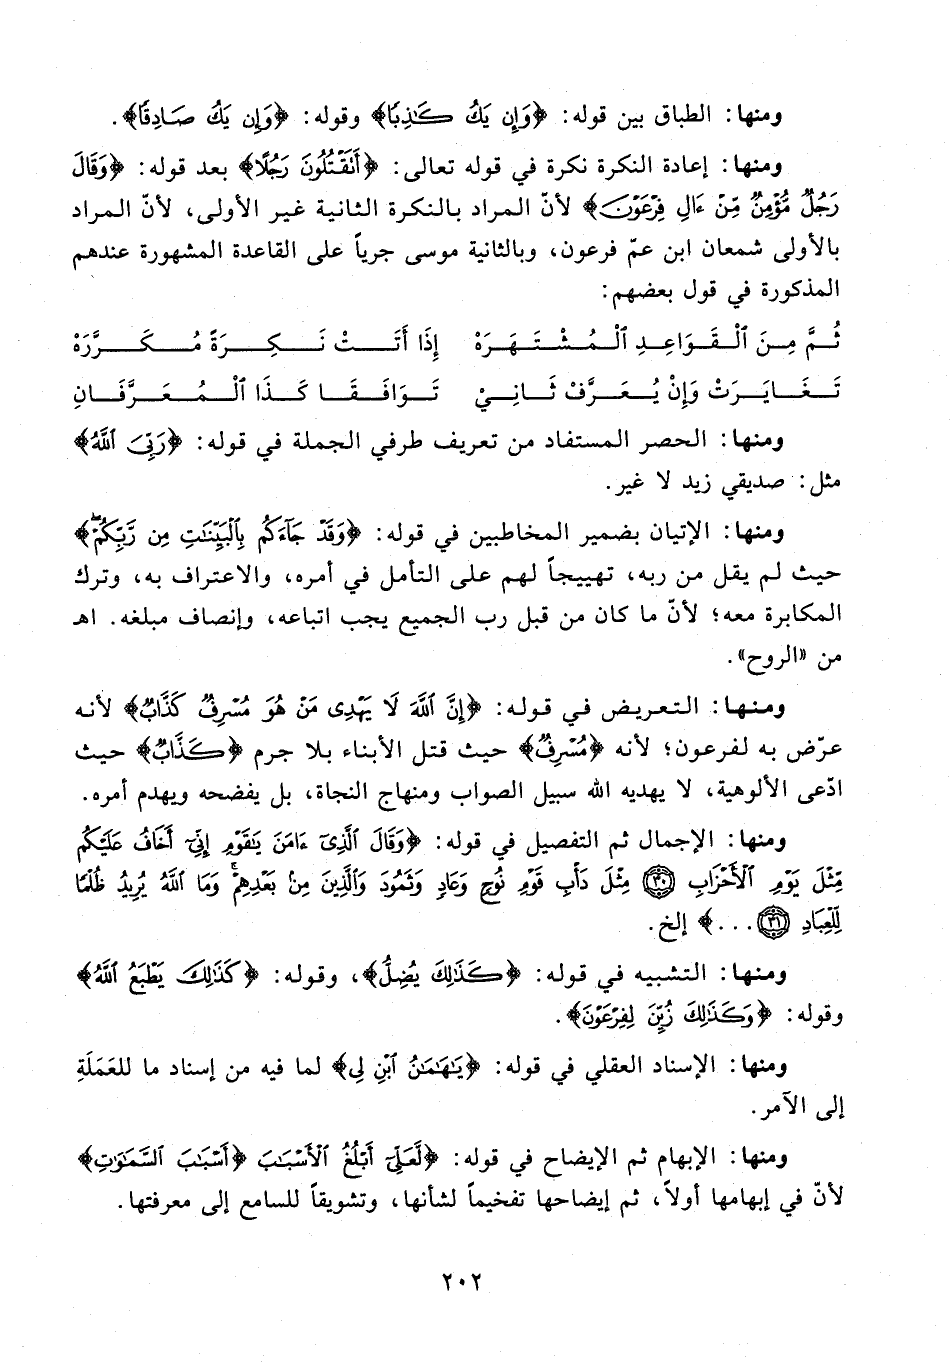 ومنها: الطباق بين قوله: ﴿وَإِن يَكُ كَٰذِبًا﴾ وقوله: ﴿وَإِن يَكُ صَادِقًا﴾.
ومنها: إعادة النكرة نكرة في قوله تعالى: ﴿أَتَقْتُلُونَ رَجُلًا﴾ بعد قوله: ﴿وَقَالَ
رَجُلٌ مُّؤْمِنٌ مِّنْ ءَالِ فِرْعَوْنَ﴾ لأنّ المراد بالنكرة الثانية غير الأولى، لأنّ المراد
بالأولى شمعان ابن عمّ فرعون، وبالثانية موسى جرياً على القاعدة المشهورة عندهم
المذكورة في قول بعضهم:
ثُمَّ مِنَ ٱلْقَوَاعِدِ ٱلْمُشْتَهَرَهْ إِذَا أَتَتْ نَكِرَةً مُكَرَّرَهْ
تَغَايَرَتْ وَإِنْ يُعَرَّفْ ثَانِيْ تَوَافَقَا كَذَا ٱلْمُعَرَّفَانِ
ومنها: الحصر المستفاد من تعريف طرفي الجملة في قوله: ﴿رَبِّيَ ٱللَّهُ﴾
مثل: صديقي زيد لا غير.
ومنها: الإتيان بضمير المخاطبين في قوله: ﴿وَقَدْ جَآءَكُم بِٱلْبَيِّنَٰتِ مِن رَّبِّكُمْ ۖ﴾
حيث لم يقل من ربه، تهييجاً لهم على التأمل في أمره، والاعتراف به، وترك
المكابرة معه؛ لأنّ ما كان من قبل رب الجميع يجب اتباعه، وإنصاف مبلغه. اهـ
من «الروح».
ومنها: التعريض في قوله: ﴿إِنَّ ٱللَّهَ لَا يَهْدِى مَنْ هُوَ مُسْرِفٌ كَذَّابٌ﴾ لأنه
عرّض به لفرعون؛ لأنه ﴿مُسْرِفٌ﴾ حيث قتل الأبناء بلا جرم ﴿كَذَّابٌ﴾ حيث
ادّعى الألوهية، لا يهديه الله سبيل الصواب ومنهاج النجاة، بل يفضحه ويهدم أمره.
ومنها: الإجمال ثم التفصيل في قوله: ﴿وَقَالَ ٱلَّذِىٓ ءَامَنَ يَٰقَوْمِ إِنِّىٓ أَخَافُ عَلَيْكُم
مِّثْلَ يَوْمِ ٱلْأَحْزَابِ ﴿٣٠﴾ مِثْلَ دَأْبِ قَوْمِ نُوحٍ وَعَادٍ وَثَمُودَ وَٱلَّذِينَ مِنۢ بَعْدِهِمْ ۚ وَمَا ٱللَّهُ يُرِيدُ ظُلْمًا
لِّلْعِبَادِ ﴿٣١﴾ ...﴾ إلخ.
ومنها: التشبيه في قوله: ﴿كَذَٰلِكَ يُضِلُّ﴾، وقوله: ﴿كَذَٰلِكَ يَطْبَعُ ٱللَّهُ﴾
وقوله: ﴿وَكَذَٰلِكَ زُيِّنَ لِفِرْعَوْنَ﴾.
ومنها: الإسناد العقلي في قوله: ﴿يَٰهَٰمَٰنُ ٱبْنِ لِى﴾ لما فيه من إسناد ما للعَمَلَةِ
إلى الآمر.
ومنها: الإبهام ثم الإيضاح في قوله: ﴿لَّعَلِّىٓ أَبْلُغُ ٱلْأَسْبَٰبَ ﴿أَسْبَٰبَ ٱلسَّمَٰوَٰتِ﴾
لأنّ في إبهامها أولاً، ثم إيضاحها تفخيماً لشأنها، وتشويقاً للسامع إلى معرفتها.
٢٠٢